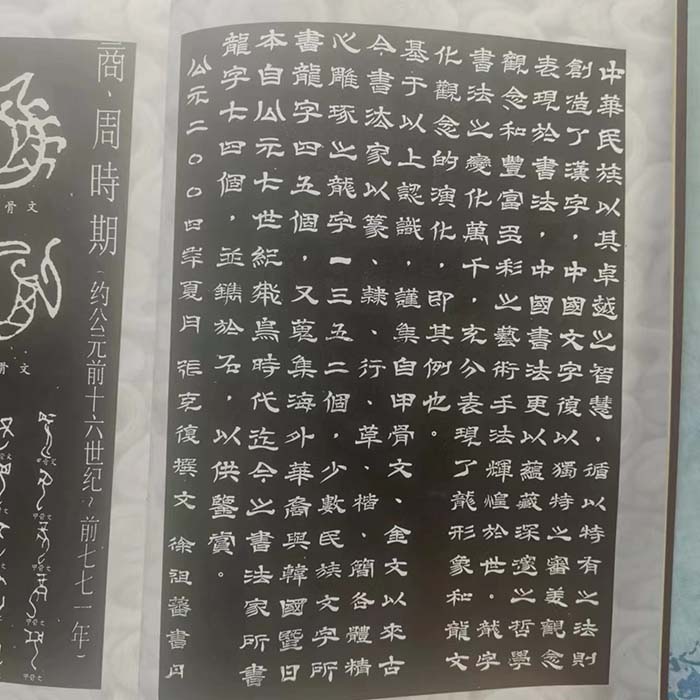 中華民族以其卓越之智慧，循以特有之法則
創造了漢字，中國文字復以獨特之審美觀念
表現於書法，中國書法更以蘊藏深邃之哲學
觀念和豐富多彩之藝術手法輝煌於世。龍字
書法之變化萬千，充分表現了龍形象和龍文
化觀念的演化，即其例也。
基于以上認識，謹集自甲骨文、金文以來古
今書法家以篆、隸、行、草、楷、簡各體精
心雕琢之龍字一三五二個，少數民族文字所
書龍字四五個，又蒐集海外華裔與韓國暨日
本自公元七世紀飛鳥時代迄今之書法家所書
龍字七四個，並鐫於石，以供鑒賞。
公元二〇〇四年夏月 張克復撰文 徐祖蕃書丹
商、周時期（约公元前十六世纪？前七七一年）
骨文
骨文